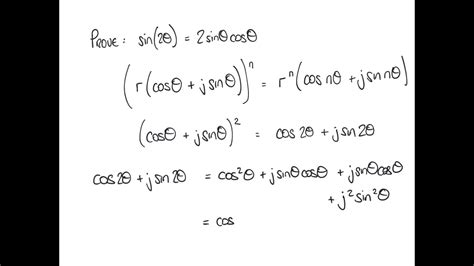 PROVE: sin(2θ) = 2sinθcosθ
(r(cosθ + jsinθ))ⁿ = rⁿ(cos nθ + jsin nθ)
(cosθ + jsinθ)² = cos2θ + jsin2θ
cos2θ + jsin2θ = cos²θ + jsinθcosθ + jsinθcosθ
+ j²sin²θ
= cos